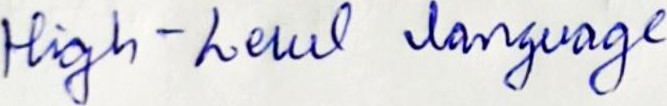 High-Level language